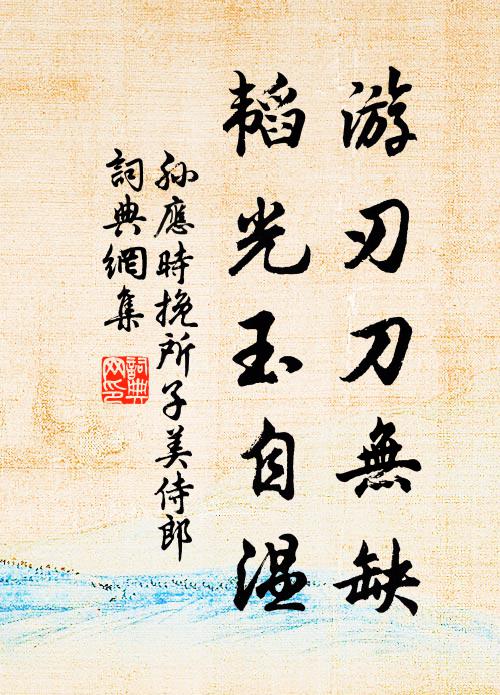 游刃刀無缺
韜光玉自温
孙應時挽所子美侍郎
詞典網集
詞典
网印